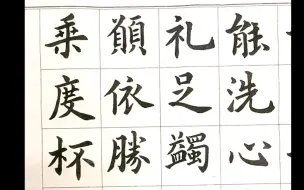 能洗心
礼足蠲
願依勝
乘度杯